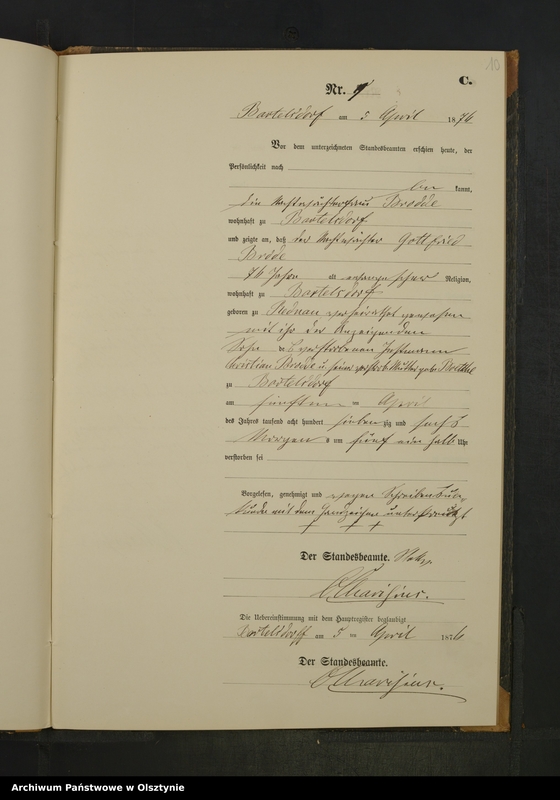 10
C.
Nr. 9
Bartelsdorf am 5 April 1876
Vor dem unterzeichneten Standesbeamten erschien heute, der
Persönlichkeit nach
be kannt,
die Brodde
wohnhaft zu Bartelsdorf
und zeigte an, daß der Gottfried
Brode
76 Jahre alt evangelischer Religion,
wohnhaft zu Bartelsdorf
geboren zu verheirathet gewesen
mit ihr der Anzeigenden
Sohn des verstorbenen
Christian Brode u seiner
zu Bartelsdorf
am fünften ten April
des Jahres tausend acht hundert sieben zig und sechs
Morgens um fünf ein halb Uhr
verstorben sei
Vorgelesen, genehmigt und wegen Schreibensun-
kunde mit dem Handzeichen
+ + +
Der Standesbeamte.
Die Uebereinstimmung mit dem Hauptregister beglaubigt
Bartelsdorff am 5 ten April 1876
Der Standesbeamte.
Archiwum Państwowe w Olsztynie